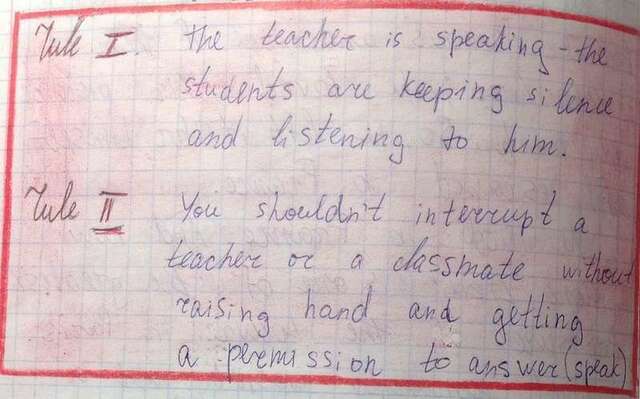 Rule I. The teacher is speaking - the
students are keeping silence
and listening to him.
Rule II You shouldn't interrupt a
teacher or a classmate without
raising hand and getting
a permission to answer (speak)